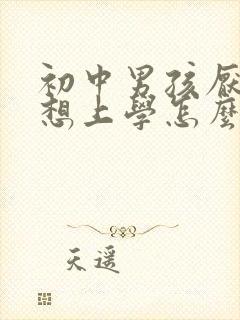 初中男孩厭
想上學怎麼
天遥